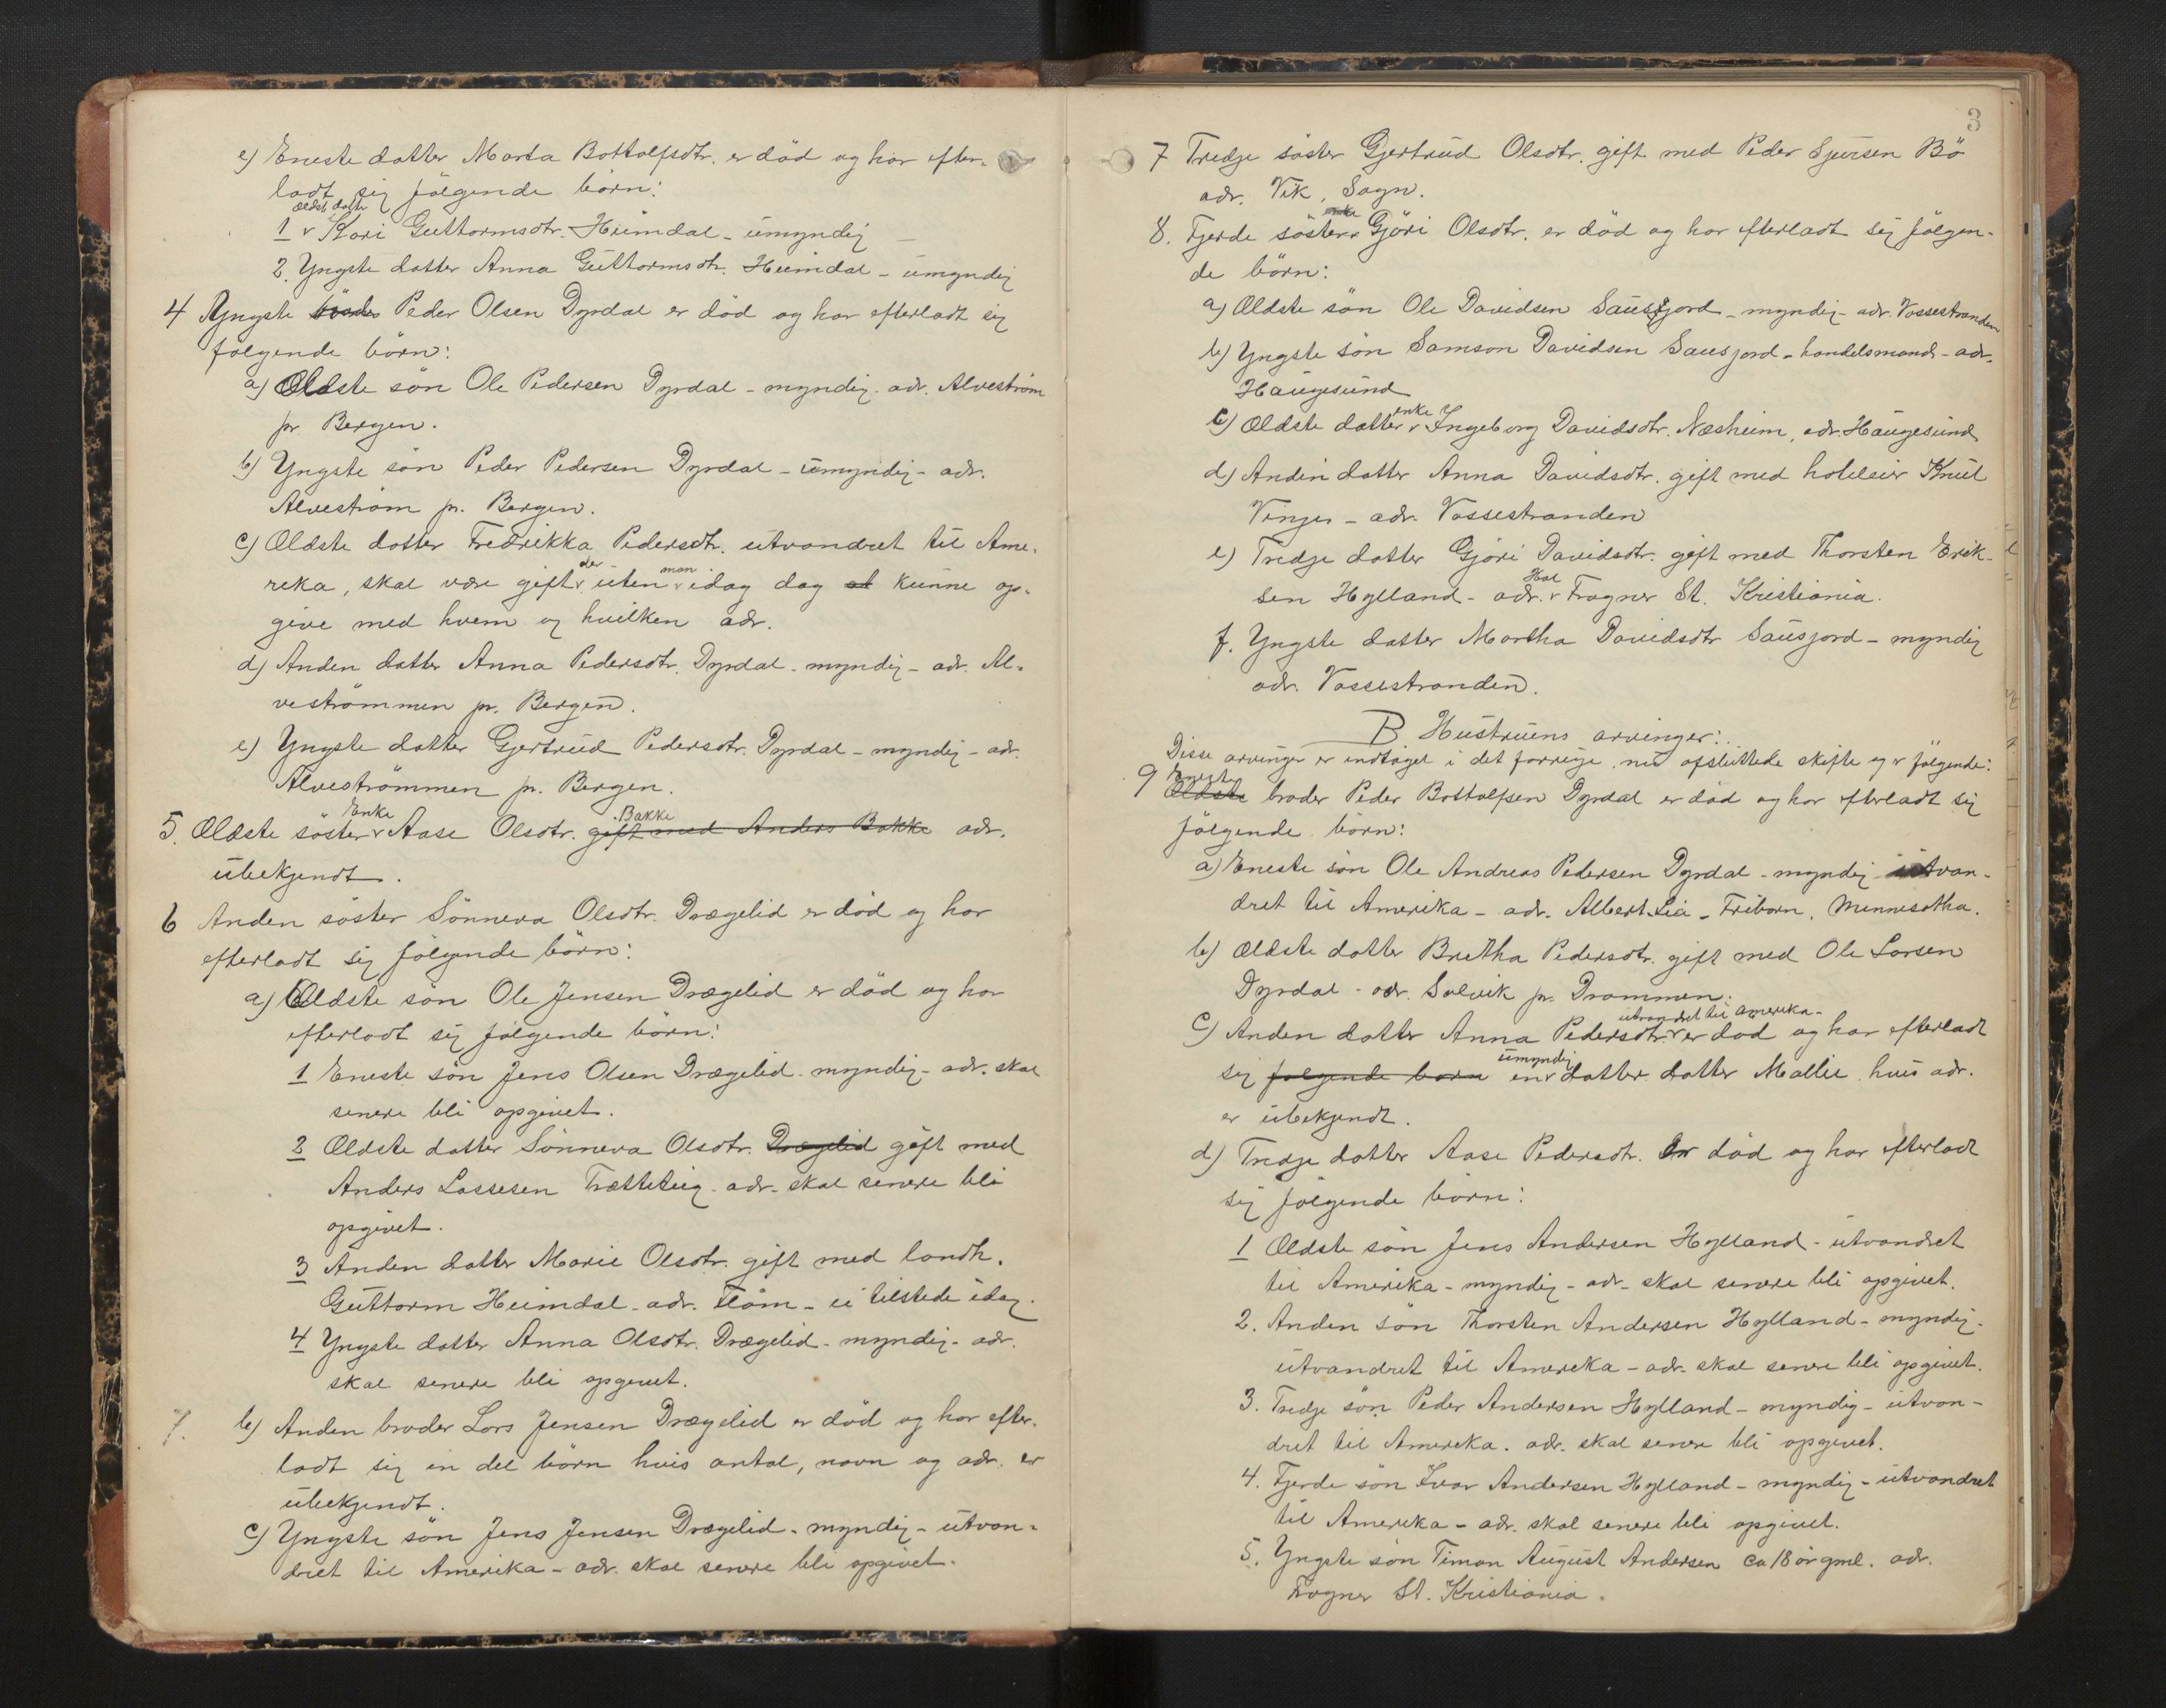 e) Eneste datter Marta Bottolfsdtr. er död og har efter-
ladt sig følgende börn:
ældst datter
1 v Kari Guttormsdtr. Heimdal - umyndig -
2. Yngste datter Anna Guttormsdtr. Heimdal - umyndig
4 Yngste broder Peder Olsen Dyrdal er död og har efterladt sig
følgende börn:
a) Ældste sön Ole Pedersen Dyrdal - myndig. adr. Alveström
pr. Bergen.
b) Yngste sön Peder Pedersen Dyrdal - umyndig - adr.
Alveström pr. Bergen.
c) Ældste datter Fredrikka Pedersdtr. utvandret til Ame-
der man
rika, skal være gift v. uten v idag dag at kunne op-
give med hvem og hvilken adr.
d) Anden datter Anna Pedersdtr. Dyrdal - myndig - adr. Al-
veströmmen pr. Bergen.
e) Yngste datter Gjertrud Pedersdtr. Dyrdal - myndig - adr.
Alveströmmen pr. Bergen.
Enke Bakke
5. Ældste söster v Aase Olsdtr. gift med Anders Bakke adr.
ubekjendt.
6 Anden söster Sönneva Olsdtr. Drægelid er död og har
efterladt sig følgende börn:
a) Ældste sön Ole Jensen Drægelid er död og har
efterladt sig følgende börn:
1 Eneste sön Jens Olsen Drægelid - myndig - adr. skal
senere bli opgivet.
2 Ældste datter Sönneva Olsdtr. Drægelid gift med
Anders Lassesen Trætteteig - adr. skal senere bli
opgivet.
3 Anden datter Marie Olsdtr. gift med landh.
Guttorm Heimdal - adr. Flåm - ei tilstede idag.
4 Yngste datter Anna Olsdtr. Drægelid - myndig - adr.
skal senere bli opgivet.
7. b) Anden broder Lars Jensen Drægelid er död og har efter-
ladt sig en del börn hvis antal, navn og adr. er
ubekjendt.
c) Yngste sön Jens Jensen Drægelid - myndig - utvan-
dret til Amerika - adr. skal senere bli opgivet.
3
7 Tredje söster Gjertrud Olsdtr. gift med Peder Sjursen Bö
adr. Vik, Sogn.
enke
8. Fjerde söster v Gjöri Olsdtr. er död og har efterladt sig følgen-
de börn:
a) Ældste sön Ole Davidsen Sausjord - myndig - adr. Vossestranden
b) Yngste sön Samson Davidsen Sausjord - handelsmand - adr.
Haugesund
enke
c) Ældste datter v Ingeborg Davidsdtr. Næsheim, adr. Haugesund
d) Anden datter Anna Davidsdtr. gift med hoteleier Knut
Vinjes - adr. Vossestranden
e) Tredje datter Gjöri Davidsdtr. gift med Thorsten Erik-
Hal
sen Hylland - adr. v Frogner St. Kristiania.
f. Yngste datter Martha Davidsdtr Sausjord - myndig
adr. Vossestranden.
B Hustruens arvinger:
Disse arvinger er indtaget i det forrige, nu afsluttede skifte og er følgende:
Eneste
9 Ældste broder Peder Bottolfsen Dyrdal er död og har efterladt sig
følgende börn:
a) Eneste sön Ole Andreas Pedersen Dyrdal - myndig utvan-
dret til Amerika - adr. Albert Lia - Friborn, Minnesotha.
b) Ældste datter Bretha Pedersdtr. gift med Ole Larsen
Dyrdal - adr. Solvik pr. Drammen.
utvandret til Amerika -
c) Anden datter Anna Pedersdtr. v er död og har efterladt
umyndig
sig følgende börn en v datter. datter Mallie hvis adr.
er ubekjendt.
d) Tredje datter Aase Pedersdtr. er död og har efterladt
sig følgende börn:
1 Ældste sön Jens Andersen Hylland - utvandret
til Amerika - myndig - adr. skal senere bli opgivet.
2. Anden sön Thorsten Andersen Hylland - myndig -
utvandret til Amerika - adr. skal senere bli opgivet.
3. Tredje sön Peder Andersen Hylland - myndig - utvan-
dret til Amerika. adr. skal senere bli opgivet.
4. Fjerde sön Ivar Andersen Hylland - myndig - utvandret
til Amerika - adr. skal senere bli opgivet.
5. Yngste sön Timan August Andersen ca 18 år gml. adr.
Frogner St. Kristiania.